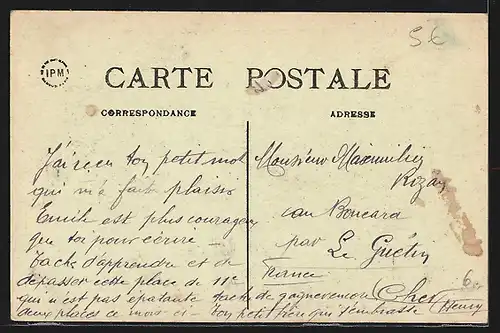 5€
IPM
CARTE POSTALE
CORRESPONDANCE
ADRESSE
J'ai reçu ton petit mot
qui m'a fait plaisir
Emile est plus courageux
que toi pour écrire —
Tache d'apprendre et de
dépasser cette place de 11e
qui n'est pas epatante tache de gagner encore
deux places ce mois-ci — ton petit qui t'embrasse
Henry
Monsieur Maximilien
Rizay
au Boucard
par Le Guétin
France
Cher
6